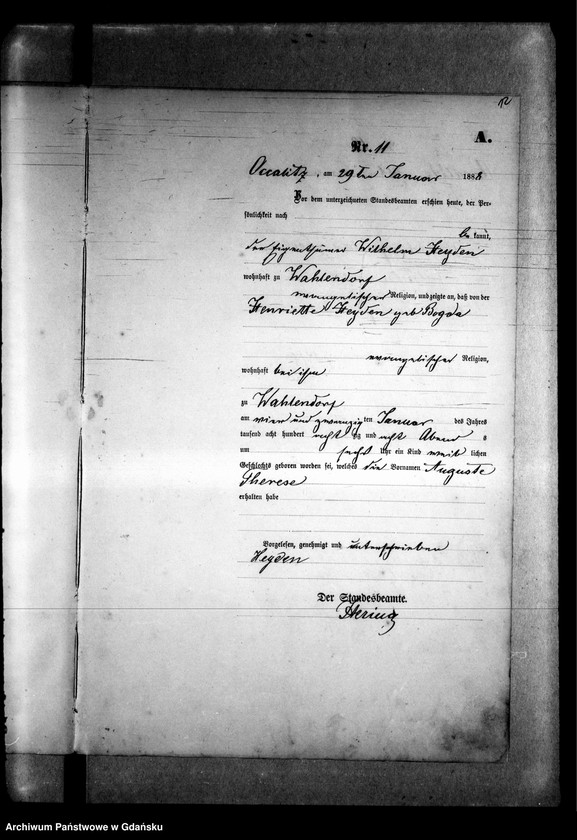 12
A.
Nr. 11
Occalitz, am 29ten Januar 1888
Vor dem unterzeichneten Standesbeamten erschien heute, der Per-
sönlichkeit nach
be kannt,
der Eigenthümer Wilhelm Heyden
wohnhaft zu Wahlendorf
evangelischer Religion, und zeigte an, daß von der
Henriette Heyden geb Bogda
evangelischer Religion,
wohnhaft bei ihm
zu Wahlendorf
am vier und zwanzig ten Januar des Jahres
tausend acht hundert acht zig und acht Abend s
um sechs Uhr ein Kind weib lichen
Geschlechts geboren worden sei, welches die Vornamen Auguste
Therese
erhalten habe
Vorgelesen, genehmigt und unterschrieben
Heyden
Der Standesbeamte.
Hering
Archiwum Państwowe w Gdańsku